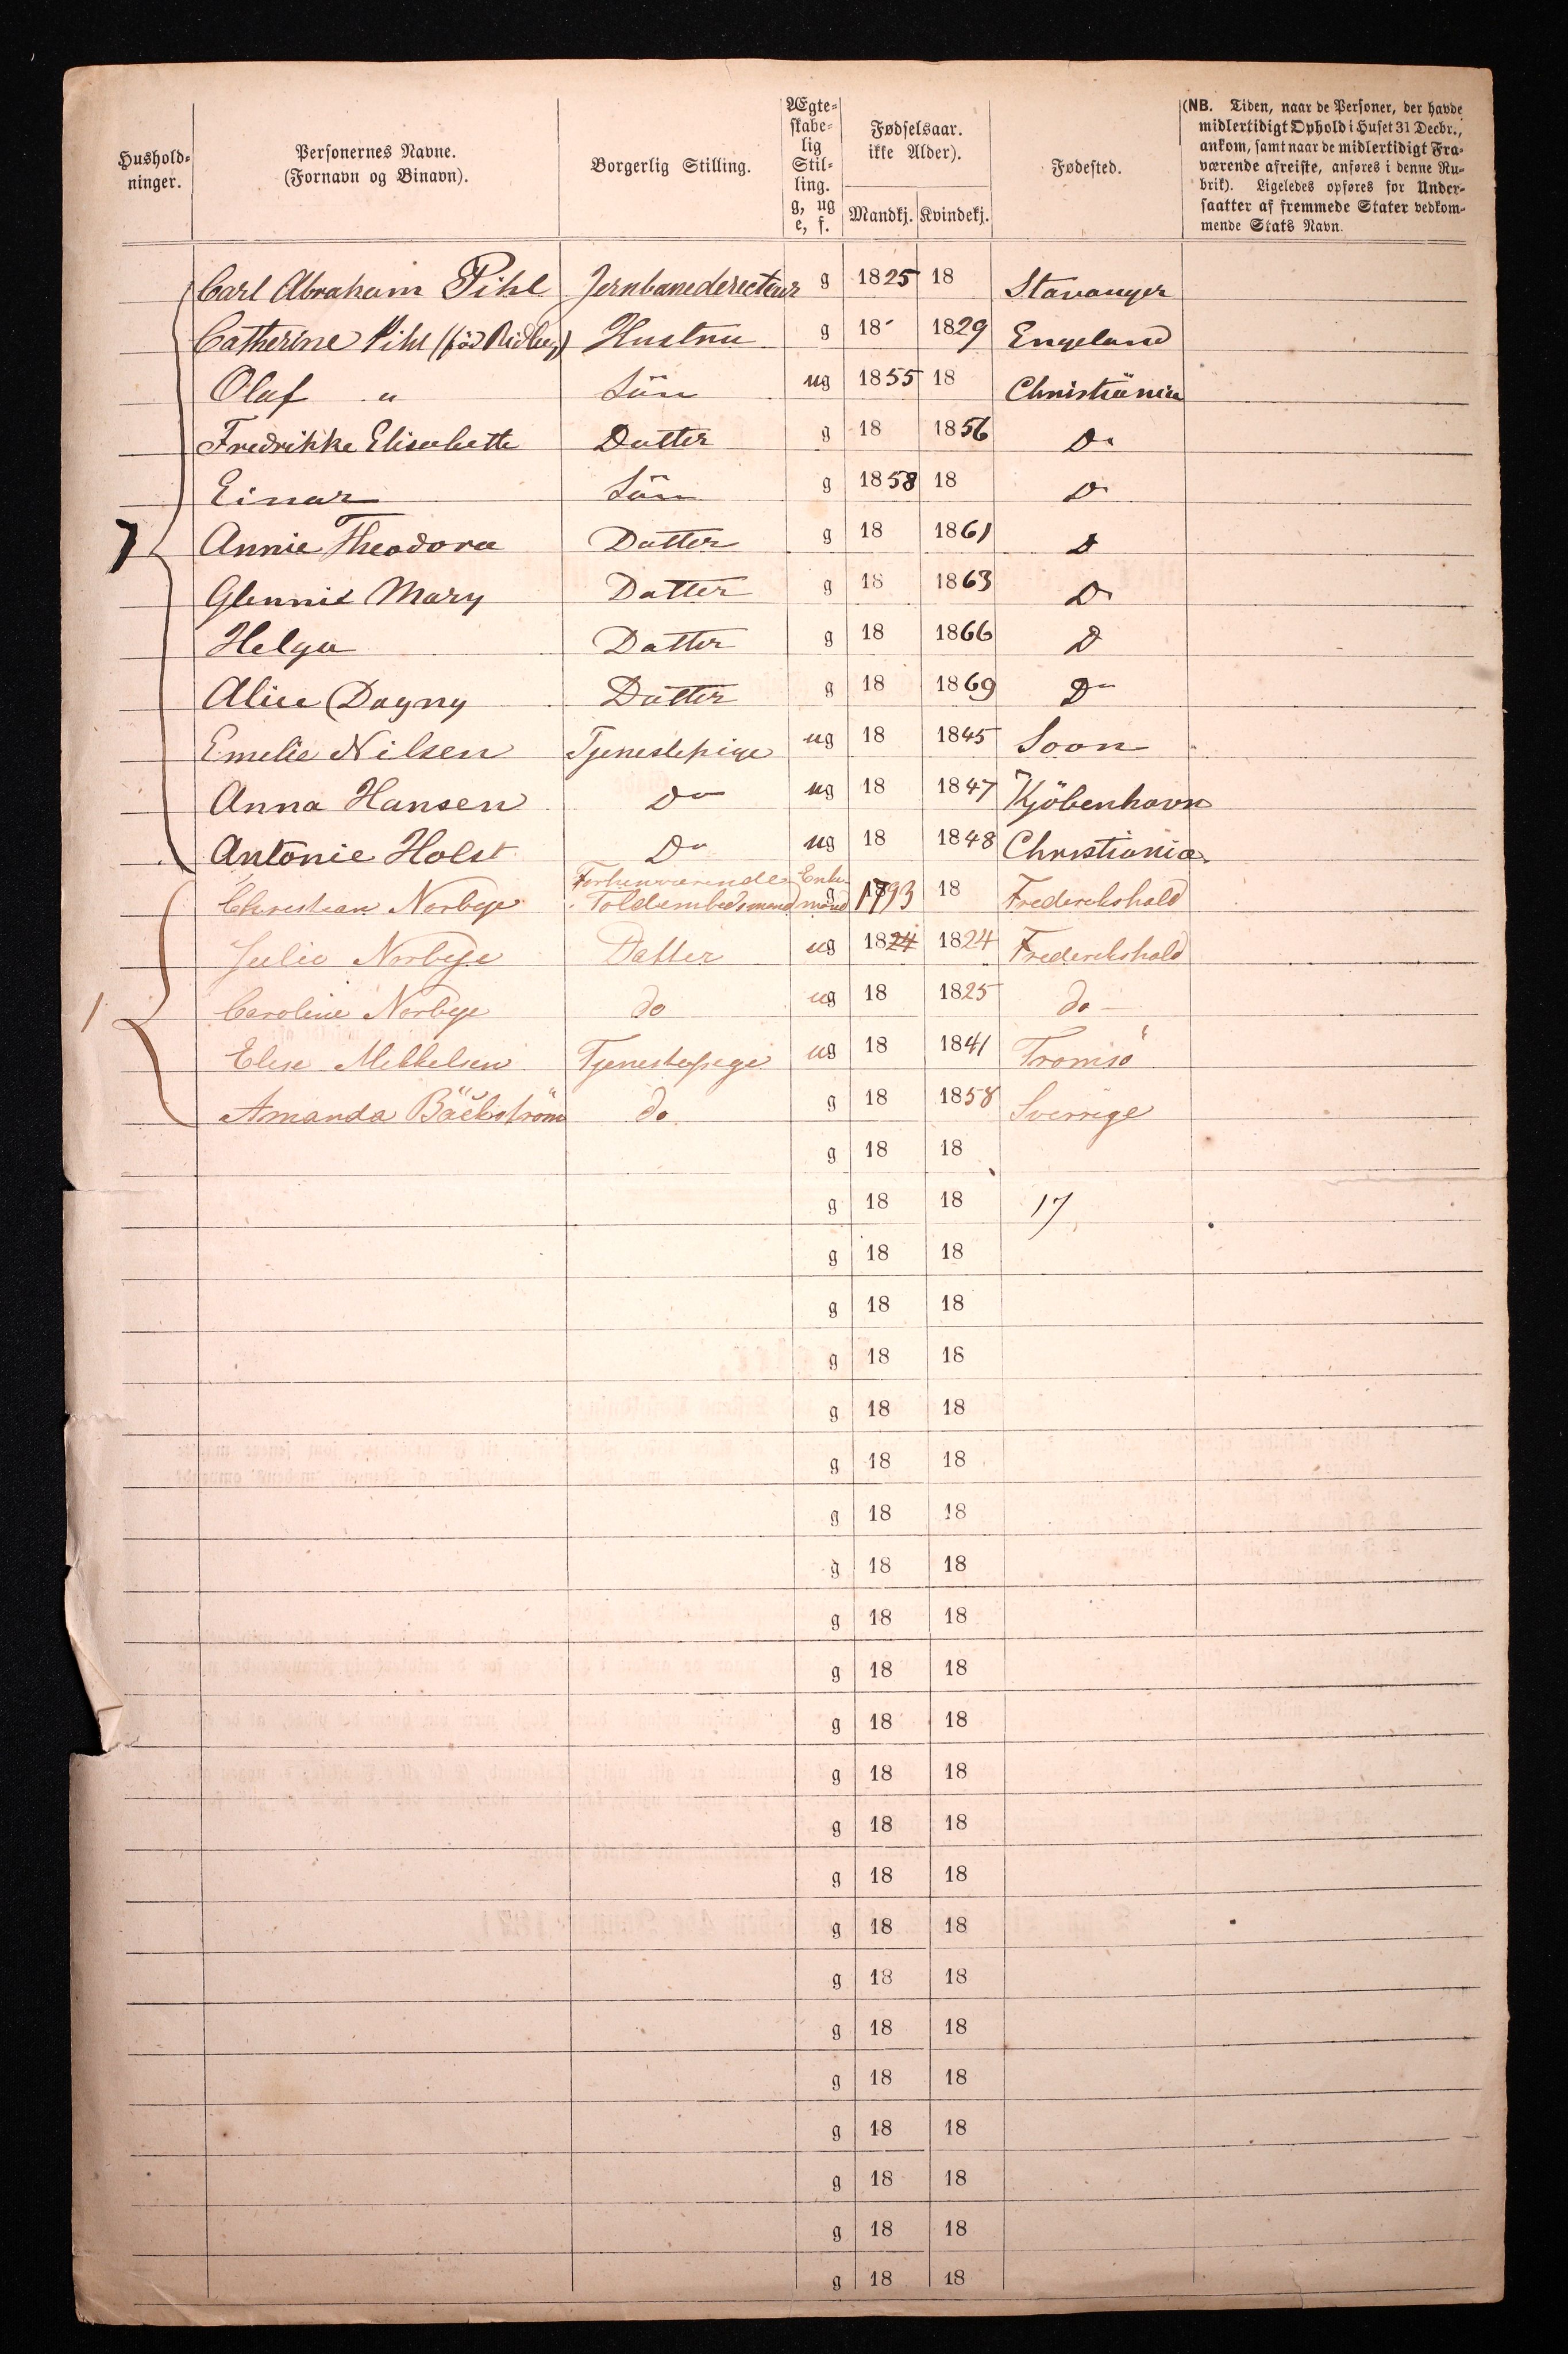 Hushold-
ninger.
Personernes Navne.
(Fornavn og Binavn).
Borgerlig Stilling.
Ægte-
skabe-
lig
Stil-
ling.
g, ug
e, f.
Fødselsaar.
ikke Alder).
Mandkj. Kvindekj.
Fødested.
(NB. Tiden, naar de Personer, der havde
midlertidigt Ophold i Huset 31 Decbr.,
ankom, samt naar de midlertidigt Fra-
værende afreiste, anføres i denne Ru-
brik). Ligeledes opføres for Under-
saatter af fremmede Stater vedkom-
mende Stats Navn.
Carl Abraham Pihl Jernbanedirecteur g 1825 18 Stavanger
Catherine Pihl (född Ridley) Hustru g 18 1829 Engeland
Olaf " Sön ug 1855 18 Christiania
Fredrikke Elisabette Datter g 18 1856 Do
Einar Sön g 1858 18 Do
1 Annie Theodora Datter g 18 1861 D
Glennie Mary Datter g 18 1863 Do
Helga Datter g 18 1866 D
Alice Dagny Datter g 18 1869 Do
Emelie Nilsen Tjenestepige ug 18 1845 Soon
Anna Hansen Do ug 18 1847 Kjöbenhavn
Antonie Holst Do ug 18 1848 Christiania
Forhenværende Enke
Christian Norbye Toldembedsmand mand g 1793 18 Frederikshald
Julie Norbye Datter ug 1824 1824 Frederikshald
1 Caroline Norbye do ug 18 1825 do
Elise Mikkelsen Tjenestepige ug 18 1841 Tromsö
Amanda Bäckström do g 18 1858 Sverrige
g 18 18
g 18 18 17
g 18 18
g 18 18
g 18 18
g 18 18
g 18 18
g 18 18
g 18 18
g 18 18
g 18 18
g 18 18
g 18 18
g 18 18
g 18 18
g 18 18
g 18 18
g 18 18
g 18 18
g 18 18
g 18 18
g 18 18
g 18 18